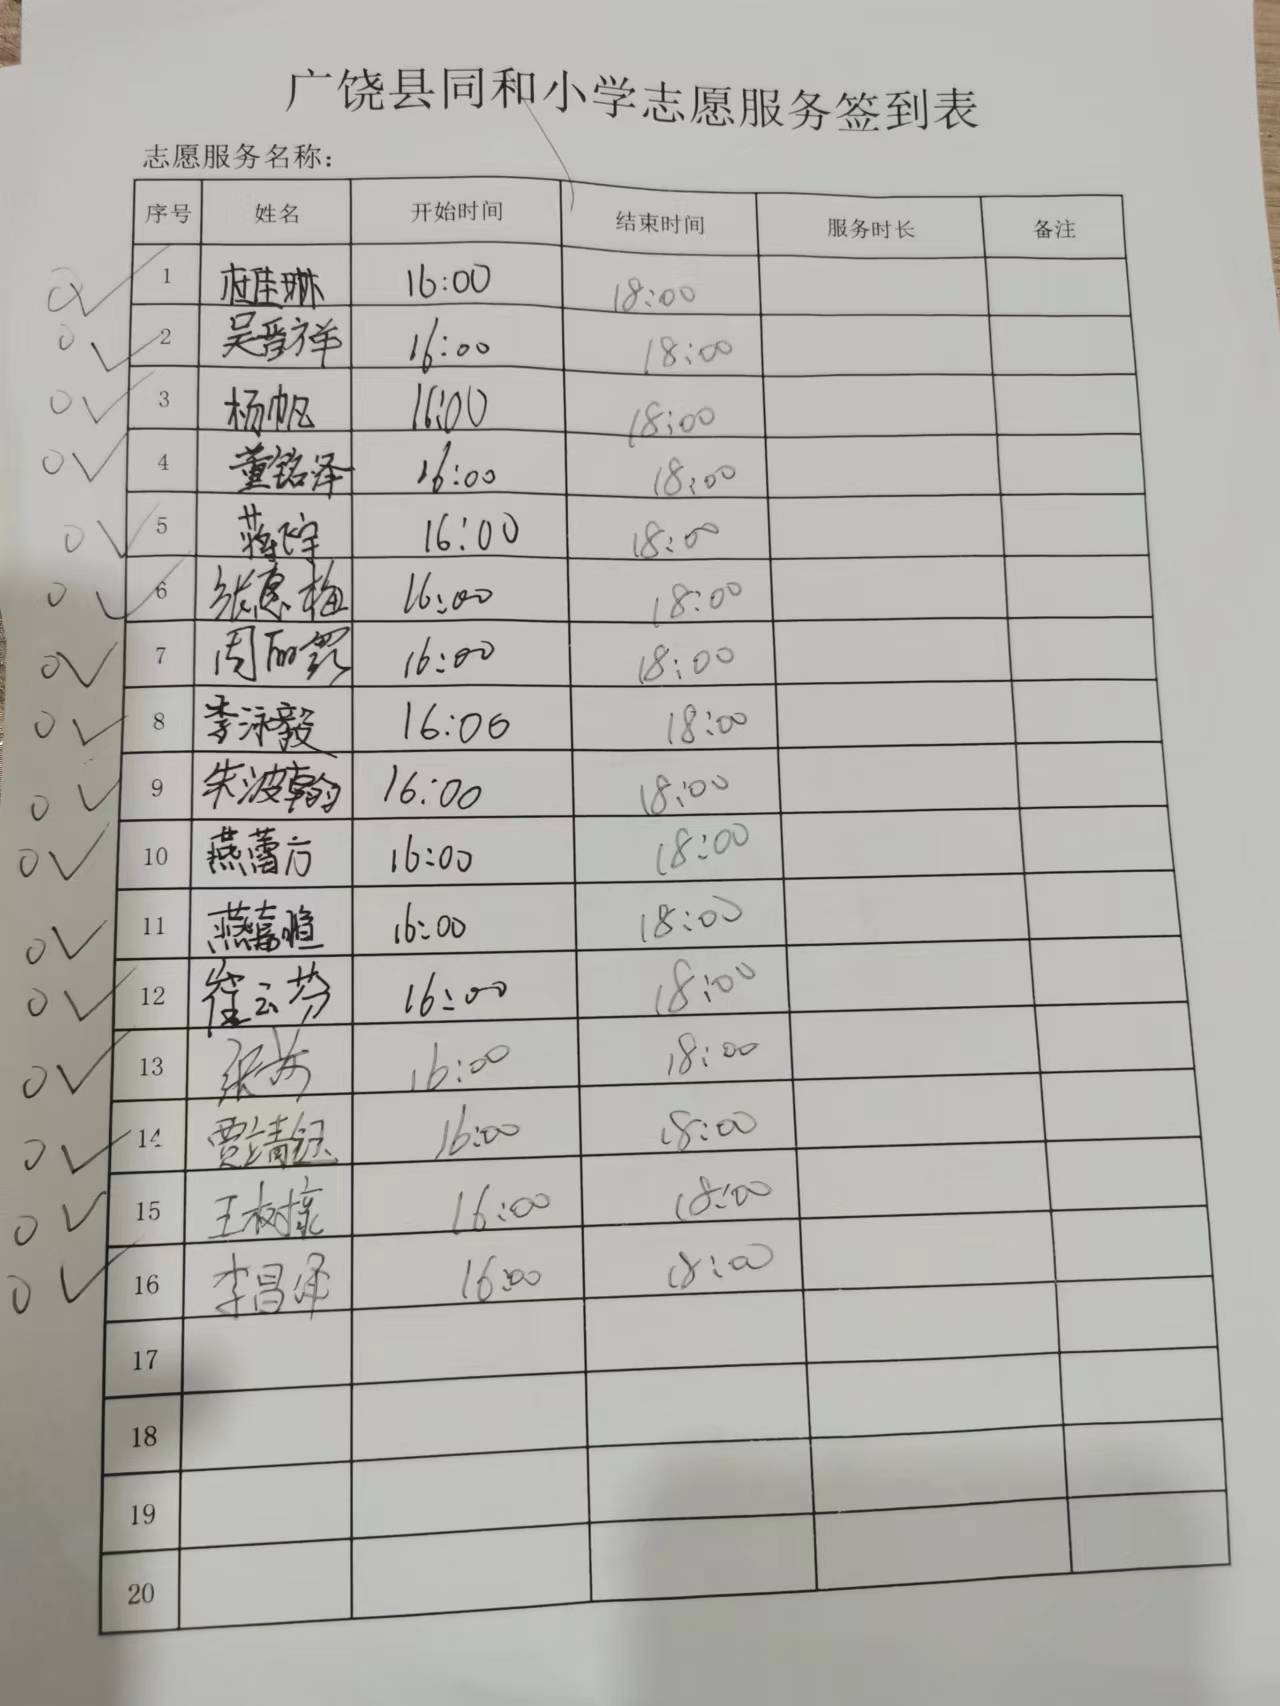 广饶县同和小学志愿服务签到表
志愿服务名称：
序号 姓名 开始时间 结束时间 服务时长 备注
1 桂琳 16:00 18:00
2 吴晋祥 16:00 18:00
3 杨帆 16:00 18:00
4 董铭泽 16:00 18:00
5 蒋宇 16:00 18:00
6 张惠梅 16:00 18:00
7 周丽 16:00 18:00
8 李泳毅 16:00 18:00
9 朱波翰 16:00 18:00
10 燕蕾方 16:00 18:00
11 燕嘉 16:00 18:00
12 崔云芬 16:00 18:00
13 张 16:00 18:00
14 贾靖钰 16:00 18:00
15 王树 16:00 18:00
16 李昌泽 16:00 18:00
17
18
19
20